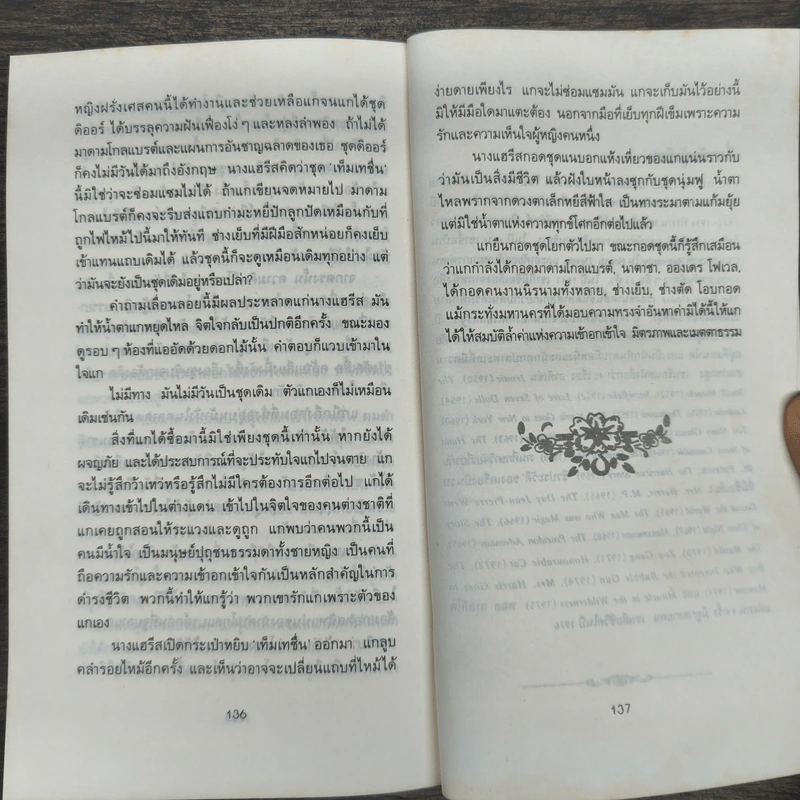 หญิงฝรั่งเศสคนนี้ได้ทำงานและช่วยเหลือแกจนแกได้ชุด
ดิออร์ ได้บรรลุความฝันเฟื่องโง่ ๆ และหลงลำพอง ถ้าไม่ได้
มาดามโกลแบรต์และแผนการอันชาญฉลาดของเธอ ชุดดิออร์
ก็คงไม่มีวันได้มาถึงอังกฤษ นางแฮรีสคิดว่าชุด 'เท็มเทชื่น'
นี้มิใช่ว่าจะซ่อมแซมไม่ได้ ถ้าแกเขียนจดหมายไป มาดาม
โกลแบรต์ก็คงจะรีบส่งแถบกำมะหยี่ปักลูกปัดเหมือนกับที่
ถูกไฟไหม้ไปนี้มาให้ทันที ช่างเย็บที่มีฝีมือสักหน่อยก็คงเย็บ
เข้าแทนแถบเดิมได้ แล้วชุดนี้ก็จะดูเหมือนเดิมทุกอย่าง แต่
ว่ามันจะยังเป็นชุดเดิมอยู่หรือเปล่า?
คำถามเลื่อนลอยนี้มีผลประหลาดแก่นางแฮรีส มัน
ทำให้น้ำตาแกหยุดไหล จิตใจกลับเป็นปกติอีกครั้ง ขณะมอง
ดูรอบ ๆ ห้องที่แออัดด้วยดอกไม้นั้น คำตอบก็แวบเข้ามาใน
ใจแก
ไม่มีทาง มันไม่มีวันเป็นชุดเดิม ตัวแกเองก็ไม่เหมือน
เดิมเช่นกัน
สิ่งที่แกได้ซื้อมานี้มิใช่เพียงชุดนี้เท่านั้น หากยังได้
ผจญภัย และได้ประสบการณ์ที่จะประทับใจแกไปจนตาย แก
จะไม่รู้สึกว้าเหว่หรือรู้สึกไม่มีใครต้องการอีกต่อไป แกได้
เดินทางเข้าไปในต่างแดน เข้าไปในจิตใจของคนต่างชาติที่
แกเคยถูกสอนให้ระแวงและดูถูก แกพบว่าคนพวกนี้เป็น
คนมีน้ำใจ เป็นมนุษย์ปุถุชนธรรมดาทั้งชายหญิง เป็นคนที่
ถือความรักและความเข้าอกเข้าใจกันเป็นหลักสำคัญในการ
ดำรงชีวิต พวกนี้ทำให้แกรู้ว่า พวกเขารักแกเพราะตัวของ
แกเอง
นางแฮรีสเปิดกระเป๋าหยิบ 'เท็มเทชื่น' ออกมา แกลูบ
คลำรอยไหม้อีกครั้ง และเห็นว่าอาจจะเปลี่ยนแถบที่ไหม้ได้
136
ง่ายดายเพียงไร แกจะไม่ซ่อมแซมมัน แกจะเก็บมันไว้อย่างนี้
มิให้มีมือใดมาแตะต้อง นอกจากมือที่เย็บทุกฝีเข็มเพราะความ
รักและความเห็นใจผู้หญิงคนหนึ่ง
นางแฮรีสกอดชุดแนบอกแห้งเหี่ยวของแกแน่นราวกับ
ว่ามันเป็นสิ่งมีชีวิต แล้วฝังใบหน้าลงซุกกับชุดนุ่มฟู น้ำตา
ไหลพรากจากดวงตาเล็กหยีสีฟ้าใส เป็นทางระมาตามแก้มยุ้ย
แต่มิใช่น้ำตาแห่งความทุกข์โศกอีกต่อไปแล้ว
แกยืนกอดชุดโยกตัวไปมา ขณะกอดชุดนี้ก็รู้สึกเสมือน
ว่าแกกำลังได้กอดมาดามโกลแบรต์, นาตาชา, อองเดร โฟเวล,
ได้กอดคนงานนิรนามทั้งหลาย, ช่างเย็บ, ช่างตัด โอบกอด
แม้กระทั่งมหานครที่ได้มอบความทรงจำอันหาค่ามิได้นี้ให้แก
ได้ให้สมบัติล้ำค่าแห่งความเข้าอกเข้าใจ มิตรภาพและเมตตาธรรม
137